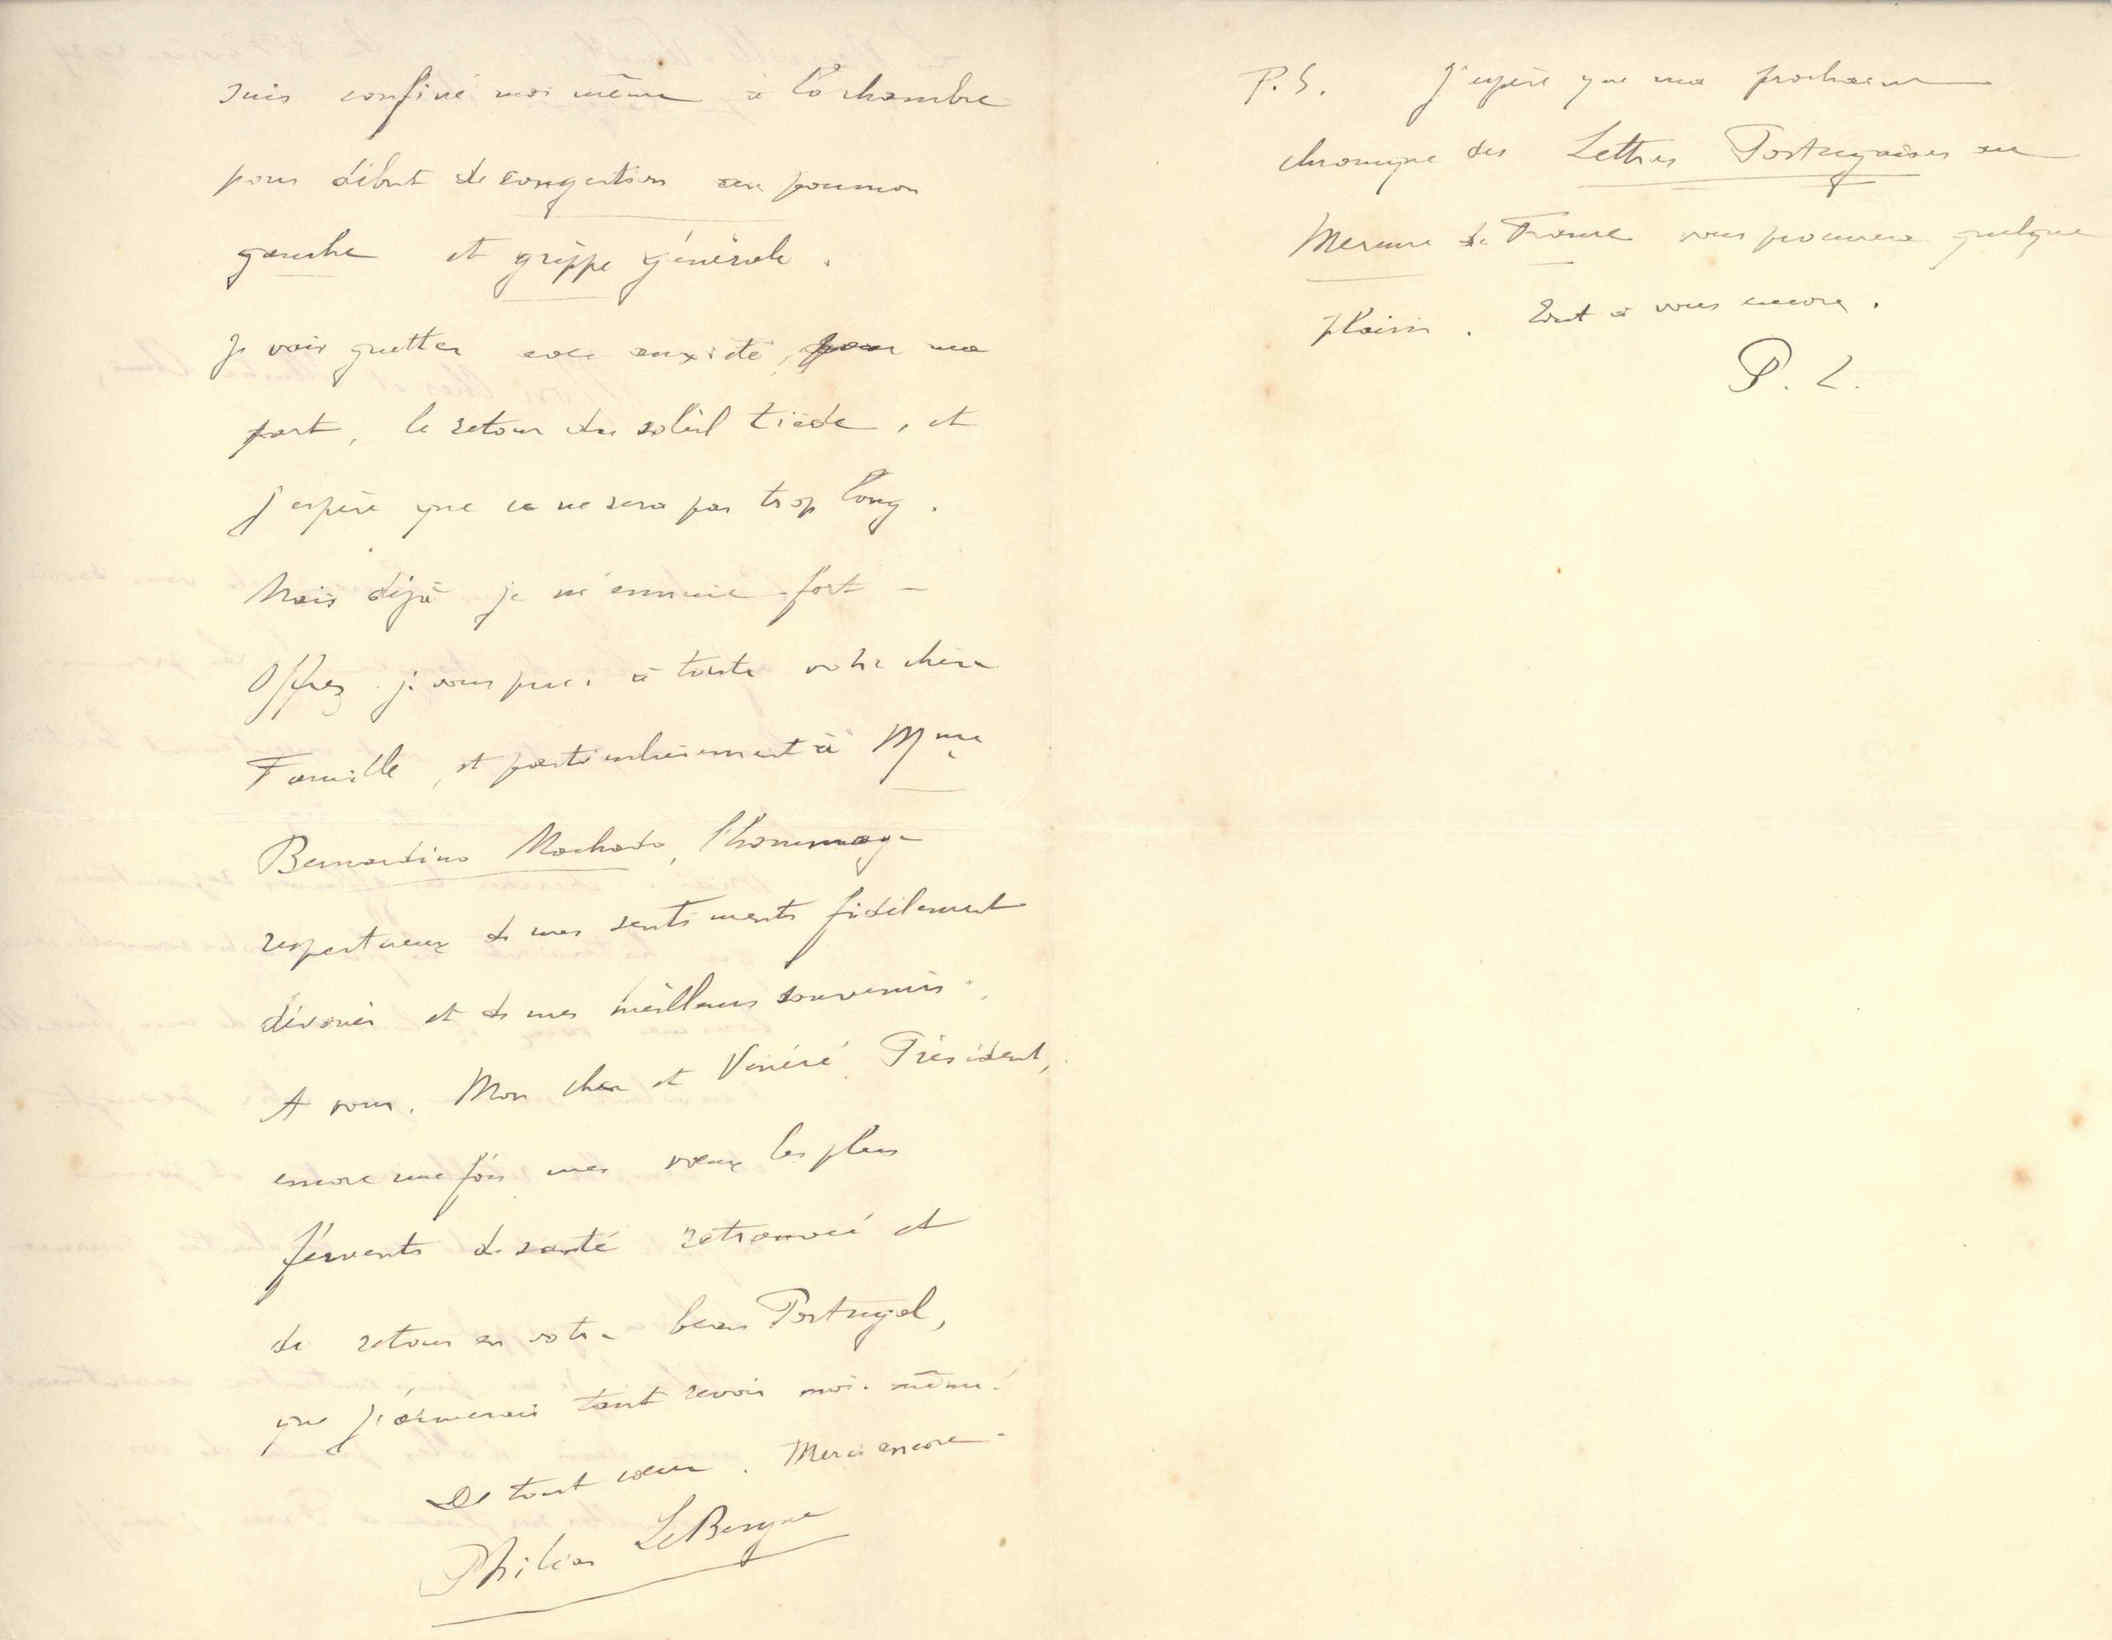 suis confiné moi même à la chambre
pour début de congestion au poumon
gauche et grippe générale.
Je vais guetter avec anxiété, pour ma
part, le retour du soleil tiède, et
j'espère que ce ne sera pas trop long.
Mais déjà je m'ennuie fort –
Offrez je vous prie, à toute votre chère
Famille, et particulièrement à Mme
Bernardino Machado, l'hommage
respectueux de mes sentiments fidèlement
dévoués et de mes meilleurs souvenirs.
A vous, Mon cher et Vénéré Président,
encore une fois mes vœux les plus
fervents de santé retrouvée et
de retour en votre beau Portugal,
que j'aimerais tant revoir moi-même!
De tout cœur. Merci encore.
Philéas LeBesgue
P.S. J'espère que ma prochaine
chronique des Lettres Portugaises au
Mercure de France vous procurera quelque
plaisir. Tout à vous encore.
P. L.